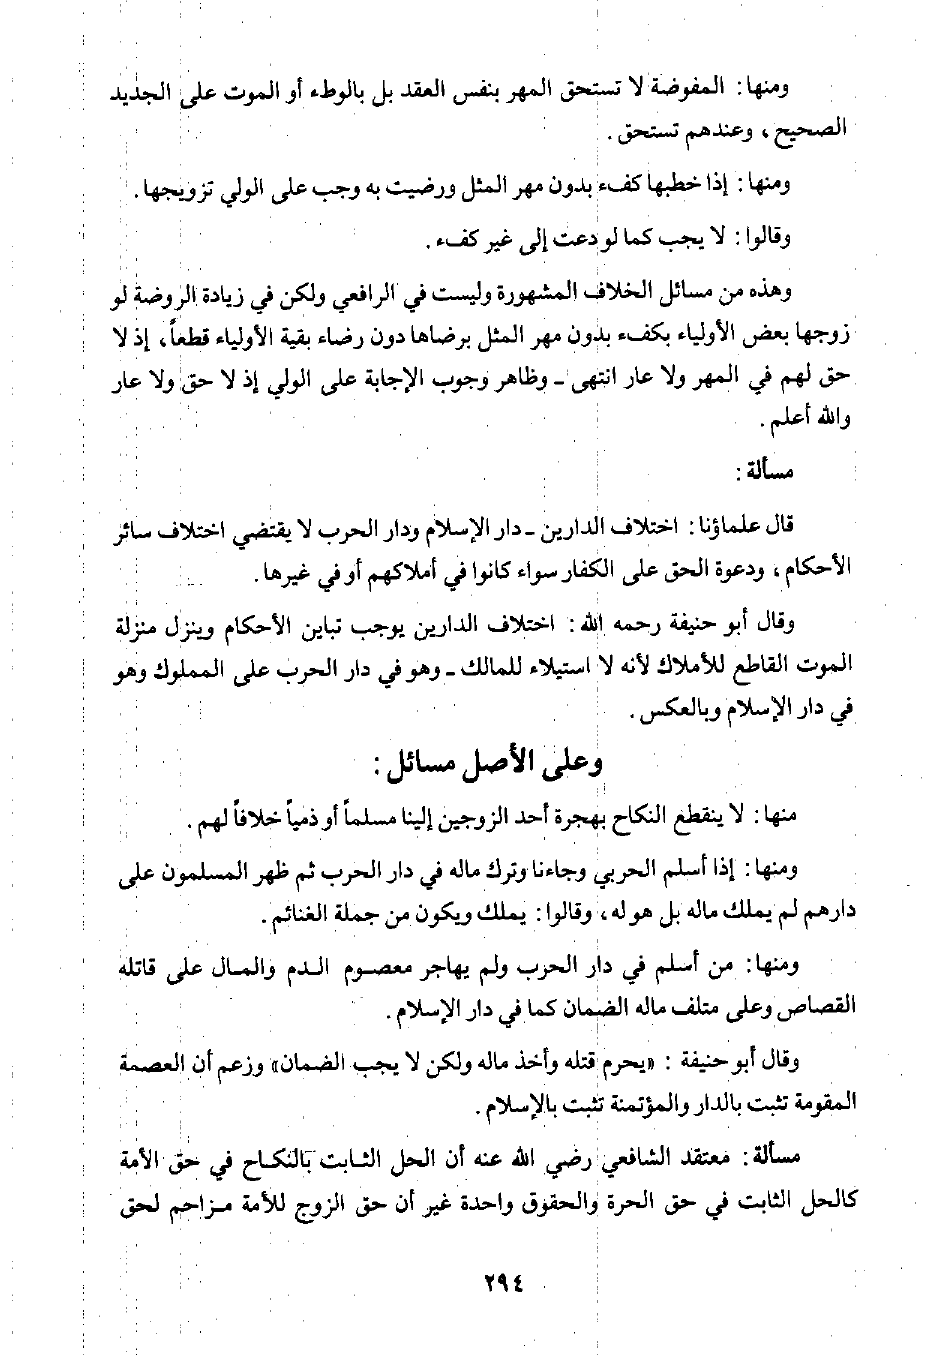 ومنها: المفوضة لا تستحق المهر بنفس العقد بل بالوطء أو الموت على الجديد
الصحيح، وعندهم تستحق.
ومنها: إذا خطبها كفء بدون مهر المثل ورضيت به وجب على الولي تزويجها.
وقالوا: لا يجب كما لو دعت إلى غير كفء.
وهذه من مسائل الخلاف المشهورة وليست في الرافعي ولكن في زيادة الروضة لو
زوجها بعض الأولياء بكفء بدون مهر المثل برضاها دون رضاء بقية الأولياء قطعاً، إذ لا
حق لهم في المهر ولا عار انتهى - وظاهر وجوب الإجابة على الولي إذ لا حق ولا عار
والله أعلم.
مسألة:
قال علماؤنا: اختلاف الدارين - دار الإسلام ودار الحرب لا يقتضي اختلاف سائر
الأحكام، ودعوة الحق على الكفار سواء كانوا في أملاكهم أو في غيرها.
وقال أبو حنيفة رحمه الله: اختلاف الدارين يوجب تباين الأحكام وينزل منزلة
الموت القاطع للأملاك لأنه لا استيلاء للمالك - وهو في دار الحرب على المملوك وهو
في دار الإسلام وبالعكس.
وعلى الأصل مسائل:
منها: لا ينقطع النكاح بهجرة أحد الزوجين إلينا مسلماً أو ذمياً خلافاً لهم.
ومنها: إذا أسلم الحربي وجاءنا وترك ماله في دار الحرب ثم ظهر المسلمون على
دارهم لم يملك ماله بل هو له، وقالوا: يملك ويكون من جملة الغنائم.
ومنها: من أسلم في دار الحرب ولم يهاجر معصوم الدم والمال على قاتله
القصاص وعلى متلف ماله الضمان كما في دار الإسلام.
وقال أبو حنيفة: «يحرم قتله وأخذ ماله ولكن لا يجب الضمان» وزعم أن العصمة
المقومة تثبت بالدار والمؤتمنة تثبت بالإسلام.
مسألة: معتقد الشافعي رضي الله عنه أن الحل الثابت بالنكاح في حق الأمة
كالحل الثابت في حق الحرة والحقوق واحدة غير أن حق الزوج للأمة مزاحم لحق
٢٩٤